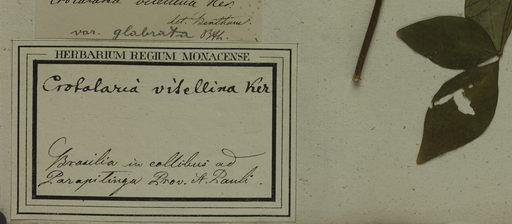 Crotalaria vitellina Ker.
det. Bentham.
var. glabrata Bth.
HERBARIUM REGIUM MONACENSE
Crotalaria vitellina Ker
Brasilia in collibus ad
Parapitinga Prov. St. Pauli.